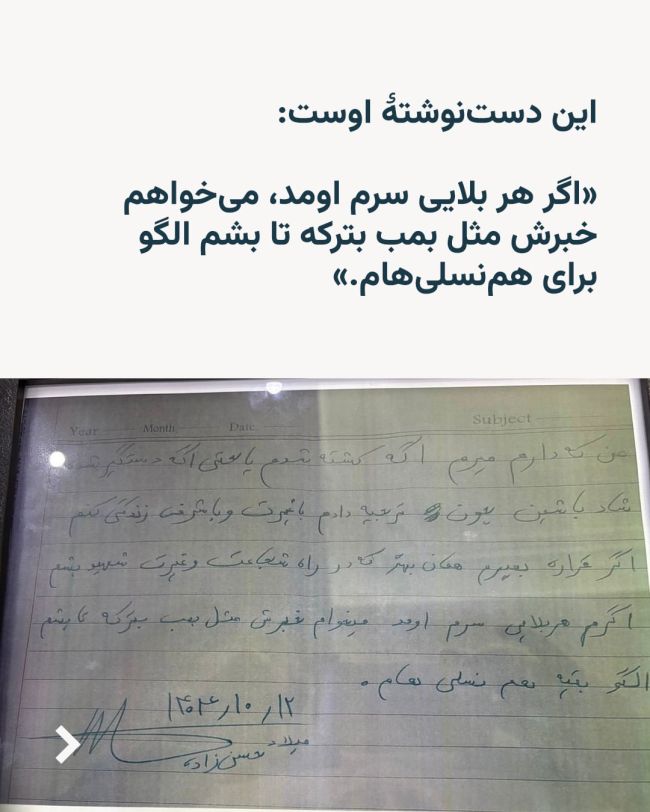 این دست‌نوشتهٔ اوست:
«اگر هر بلایی سرم اومد، می‌خواهم
خبرش مثل بمب بترکه تا بشم الگو
برای هم‌نسلی‌هام.»
Year Month Date Subject
من که دارم میرم اگه کشته شدم یا حتی اگه دستگیر شدم
شاد باشین چون ترجیح دادم باغیرت و باشرف زندگی کنم
اگر قراره بمیرم همان بهتر که در راه شجاعت و غیرت شهید بشم
اگرم هر بلایی سرم اومد میخوام خبرش مثل بمب بترکه تا بشم
الگو بقیه هم نسلی هام.
۱۴۰۴/۱۰/۱۲
میلاد حسن‌زاده